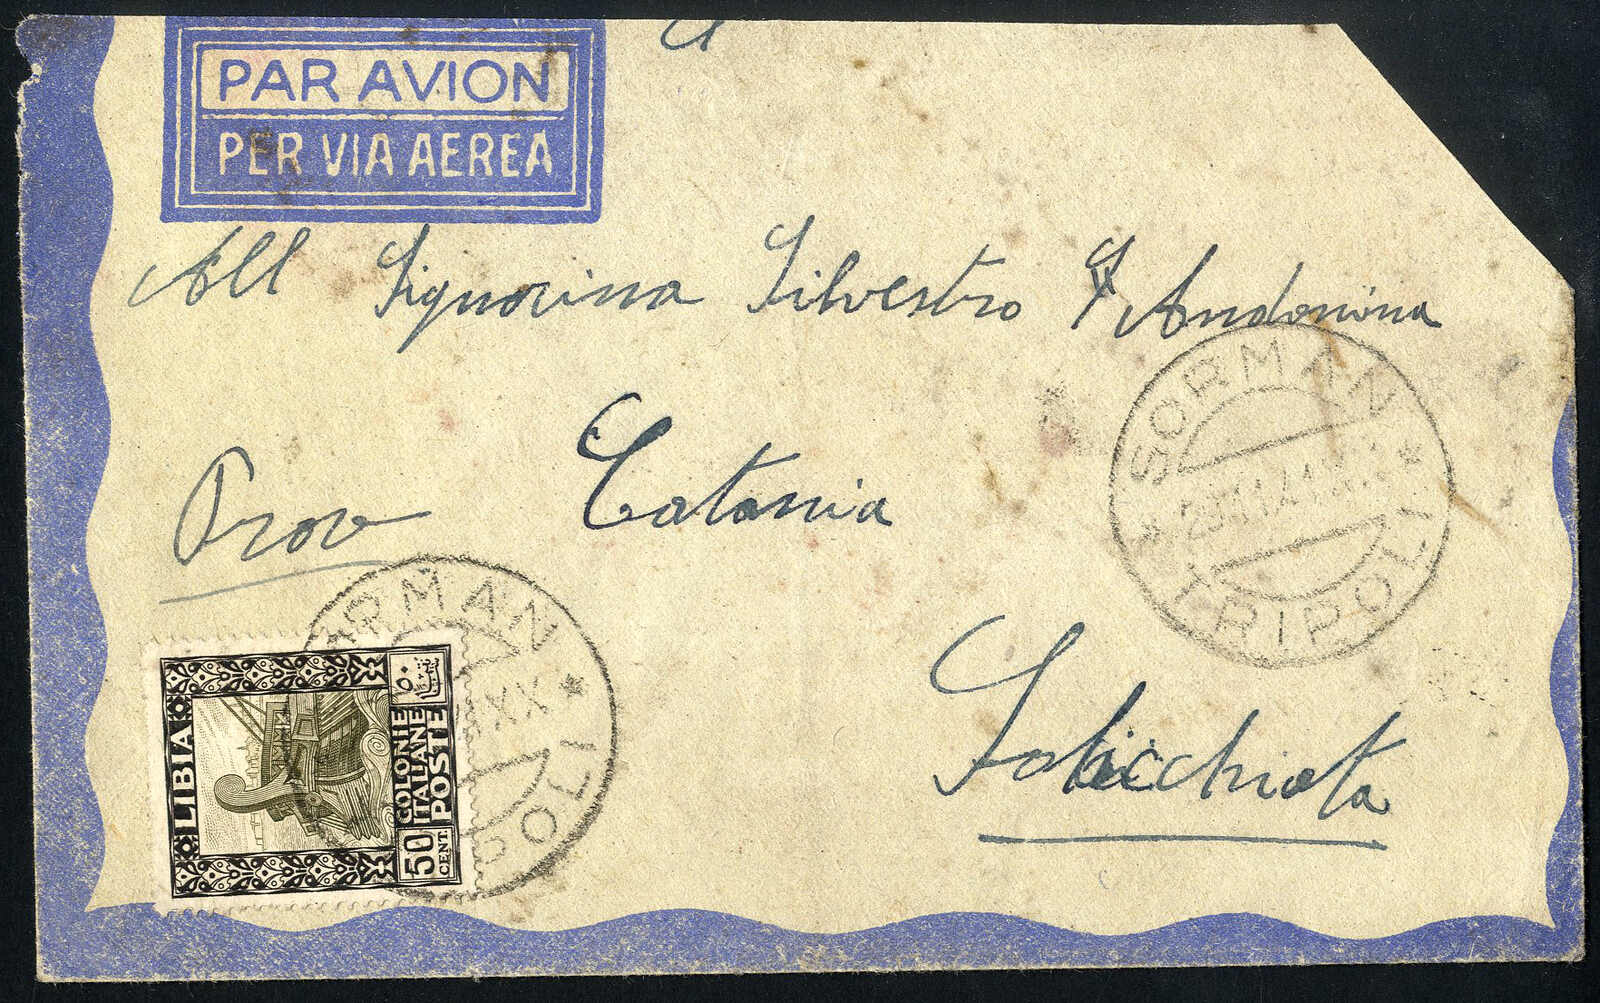 PAR AVION
PER VIA AEREA
All Signorina Silvestro
Catania
Prov
SORMAN
TRIPOLI
RMAN
XX
POLI
LIBIA
COLONIE
ITALIANE
POSTE
50
CENT.